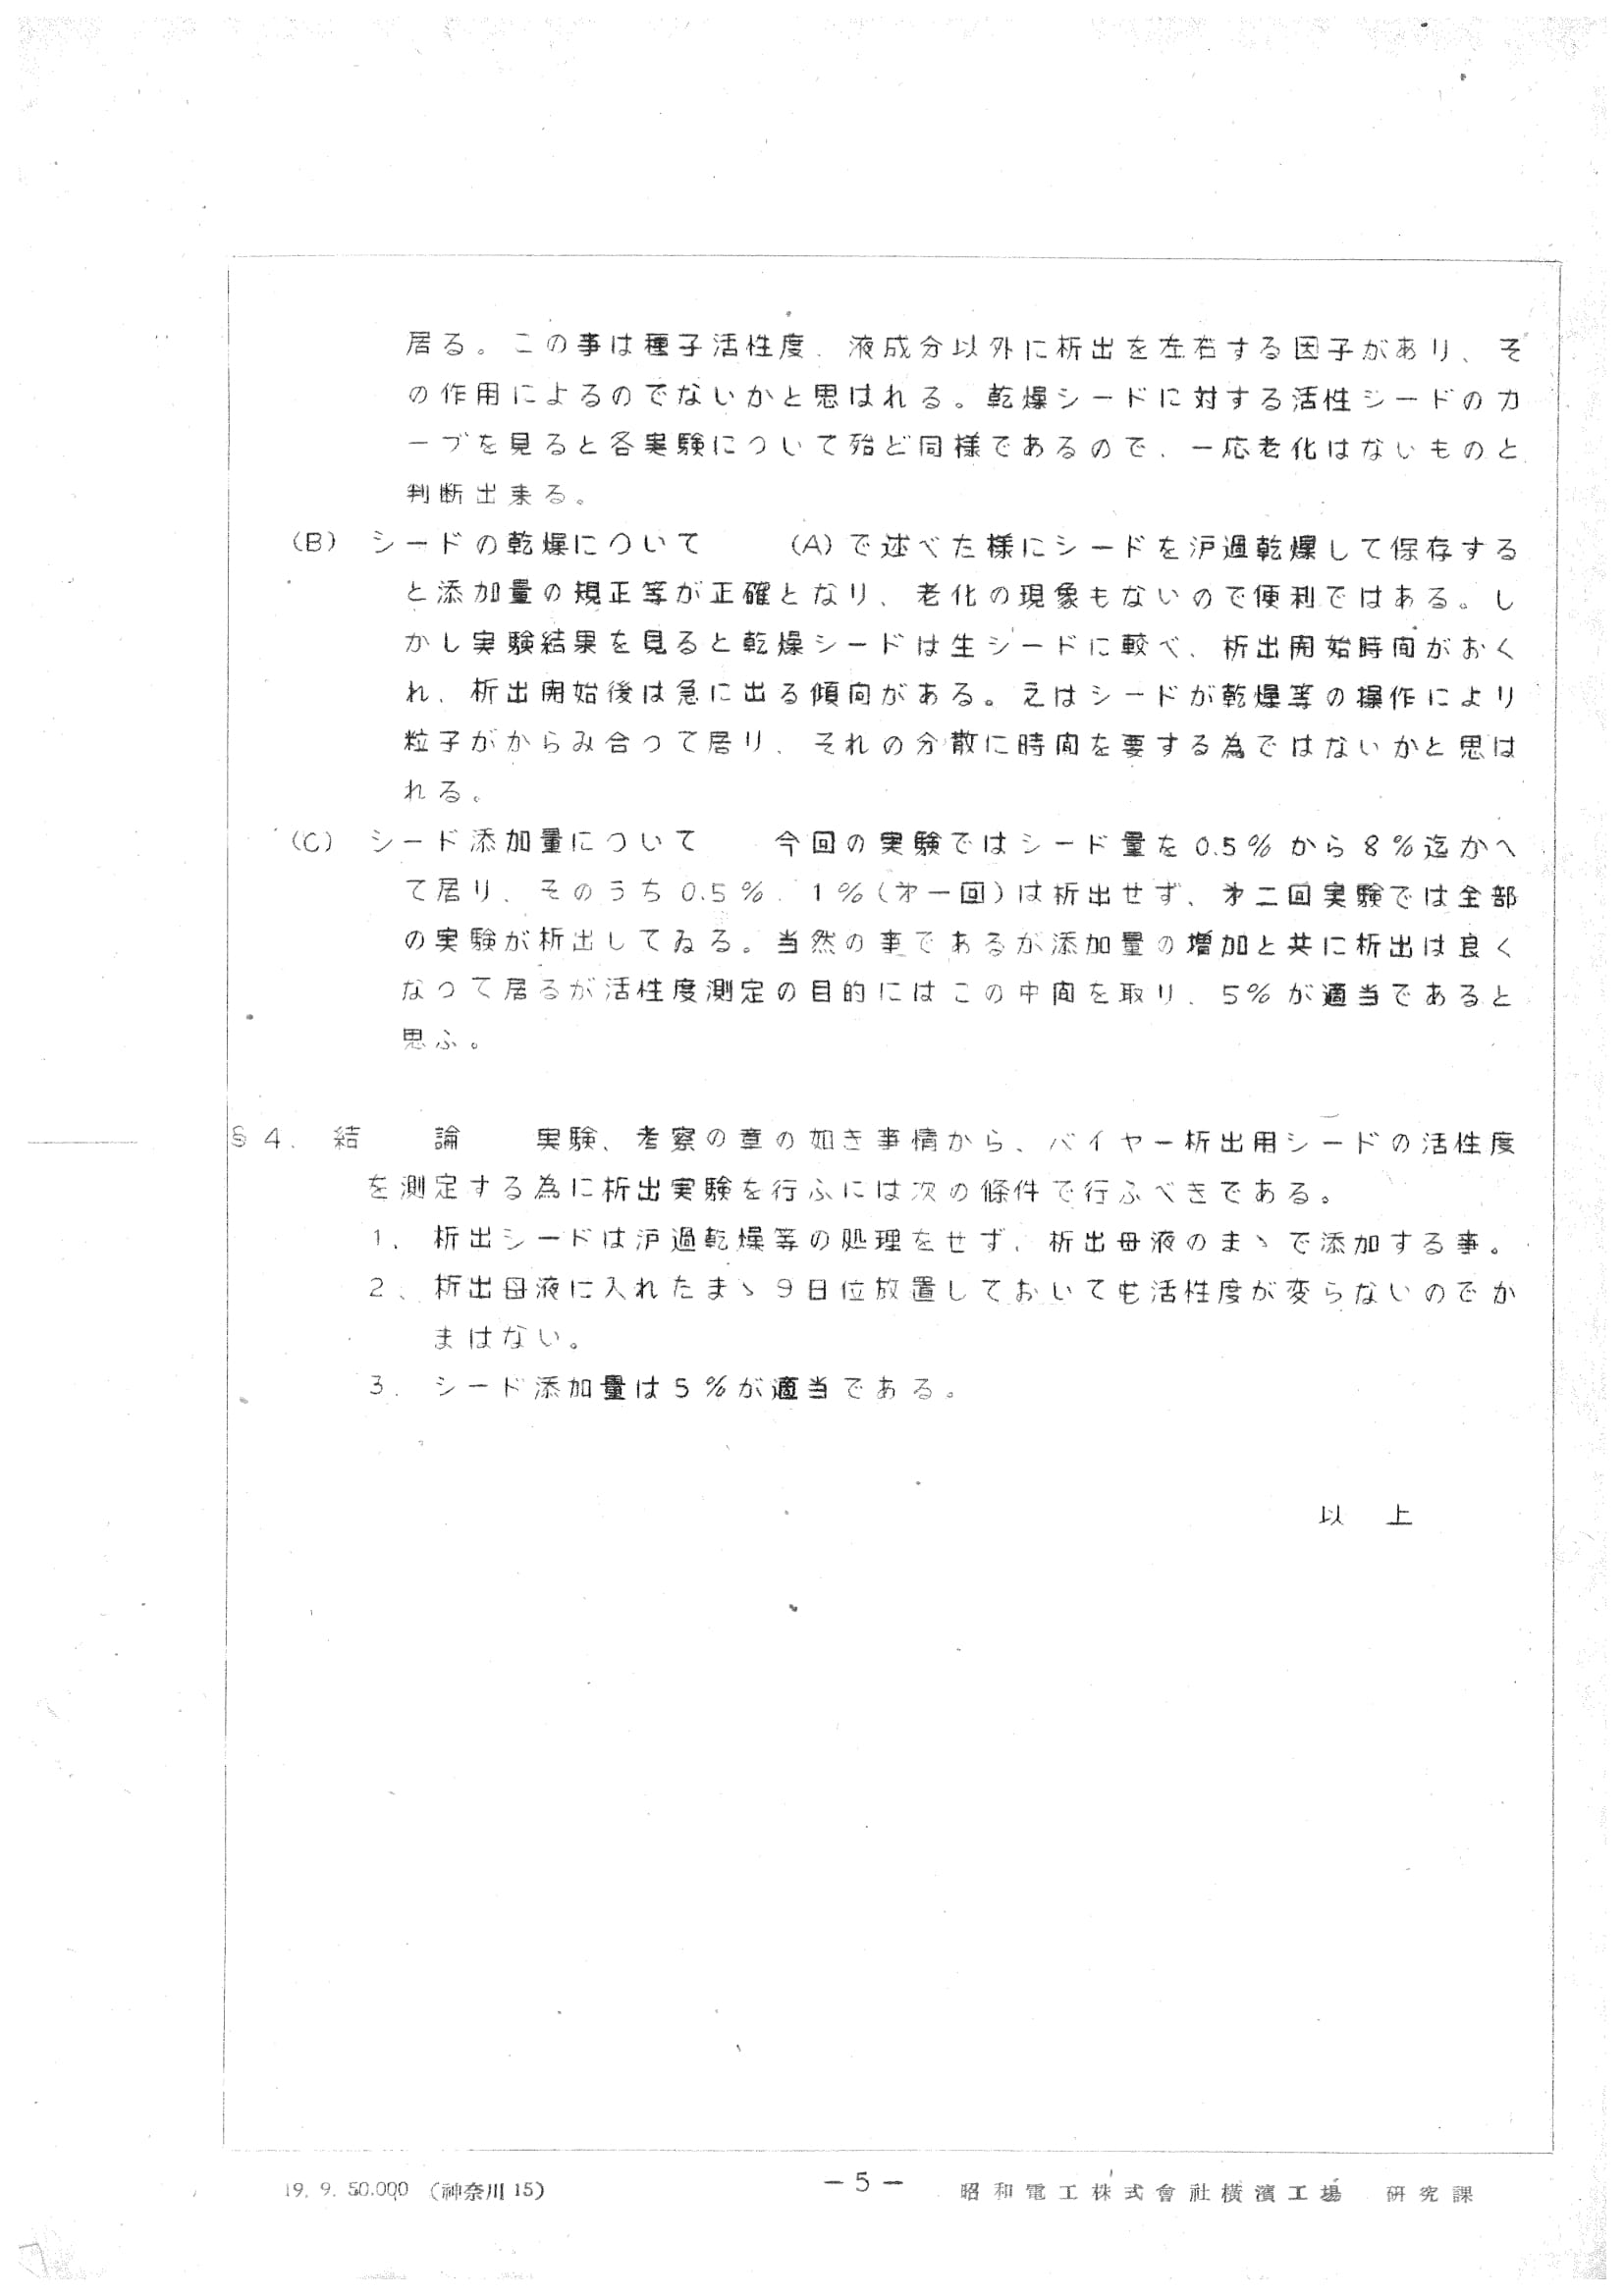 居る。この事は種子活性度、液成分以外に析出を左右する因子があり、そ
の作用によるのでないかと思はれる。乾燥シードに対する活性シードのカ
ーブを見ると各実験について殆ど同様であるので、一応老化はないものと
判断出来る。
(B) シードの乾燥について (A)で述べた様にシードを沪過乾燥して保存する
と添加量の規正等が正確となり、老化の現象もないので便利ではある。し
かし実験結果を見ると乾燥シードは生シードに較べ、析出開始時間がおく
れ、析出開始後は急に出る傾向がある。之はシードが乾燥等の操作により
粒子がからみ合って居り、それの分散に時間を要する為ではないかと思は
れる。
(C) シード添加量について 今回の実験ではシード量を0.5%から8%迄かへ
て居り、そのうち0.5%、1%(才一回)は析出せず、才二回実験では全部
の実験が析出してゐる。当然の事であるが添加量の増加と共に析出は良く
なって居るが活性度測定の目的にはこの中間を取り、5%が適当であると
思ふ。
§4. 結 論 実験、考察の章の如き事情から、バイヤー析出用シードの活性度
を測定する為に析出実験を行ふには次の條件で行ふべきである。
1、析出シードは沪過乾燥等の処理をせず、析出母液のまゝで添加する事。
2、析出母液に入れたまゝ9日位放置しておいても活性度が変らないのでか
まはない。
3. シード添加量は5%が適当である。
以 上
19. 9. 50.000 (神奈川15)
－5－
昭和電工株式會社横濱工場 研究課